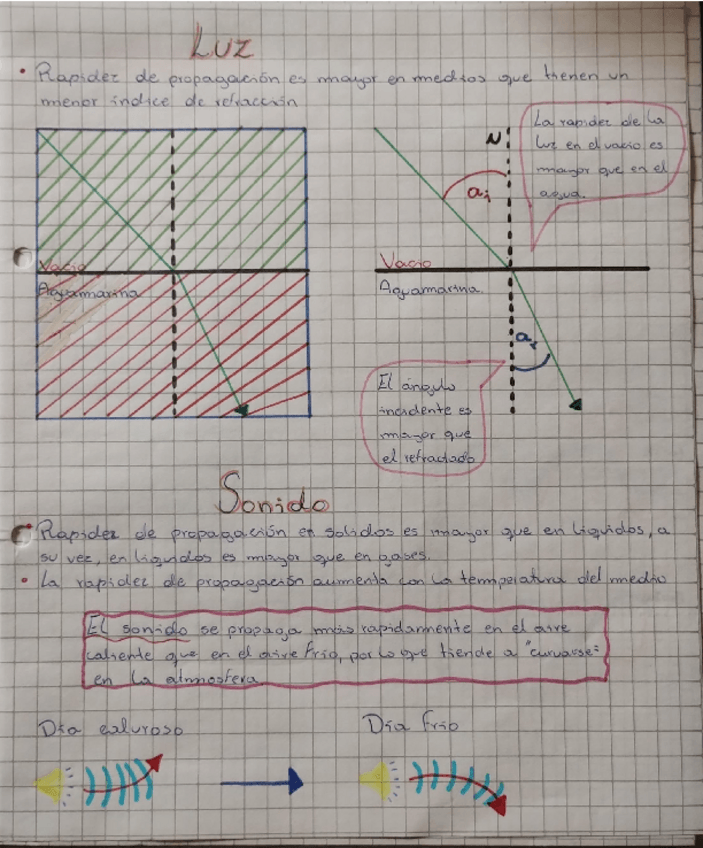 Luz
• Rapidez de propagación es mayor en medios que tienen un
menor índice de refracción
Vacío
Aguamarina
N
ai
La rapidez de la
luz en el vacío es
mayor que en el
agua.
Vacío
Aguamarina.
ar
El ángulo
incidente es
mayor que
el refractado
Sonido
• Rapidez de propagación en solidos es mayor que en líquidos, a
su vez, en líquidos es mayor que en gases.
• La rapidez de propagación aumenta con la temperatura del medio
El sonido se propaga más rapidamente en el aire
caliente que en el aire frío, por lo que tiende a "curvarse"
en la atmosfera
Día caluroso
Día frío